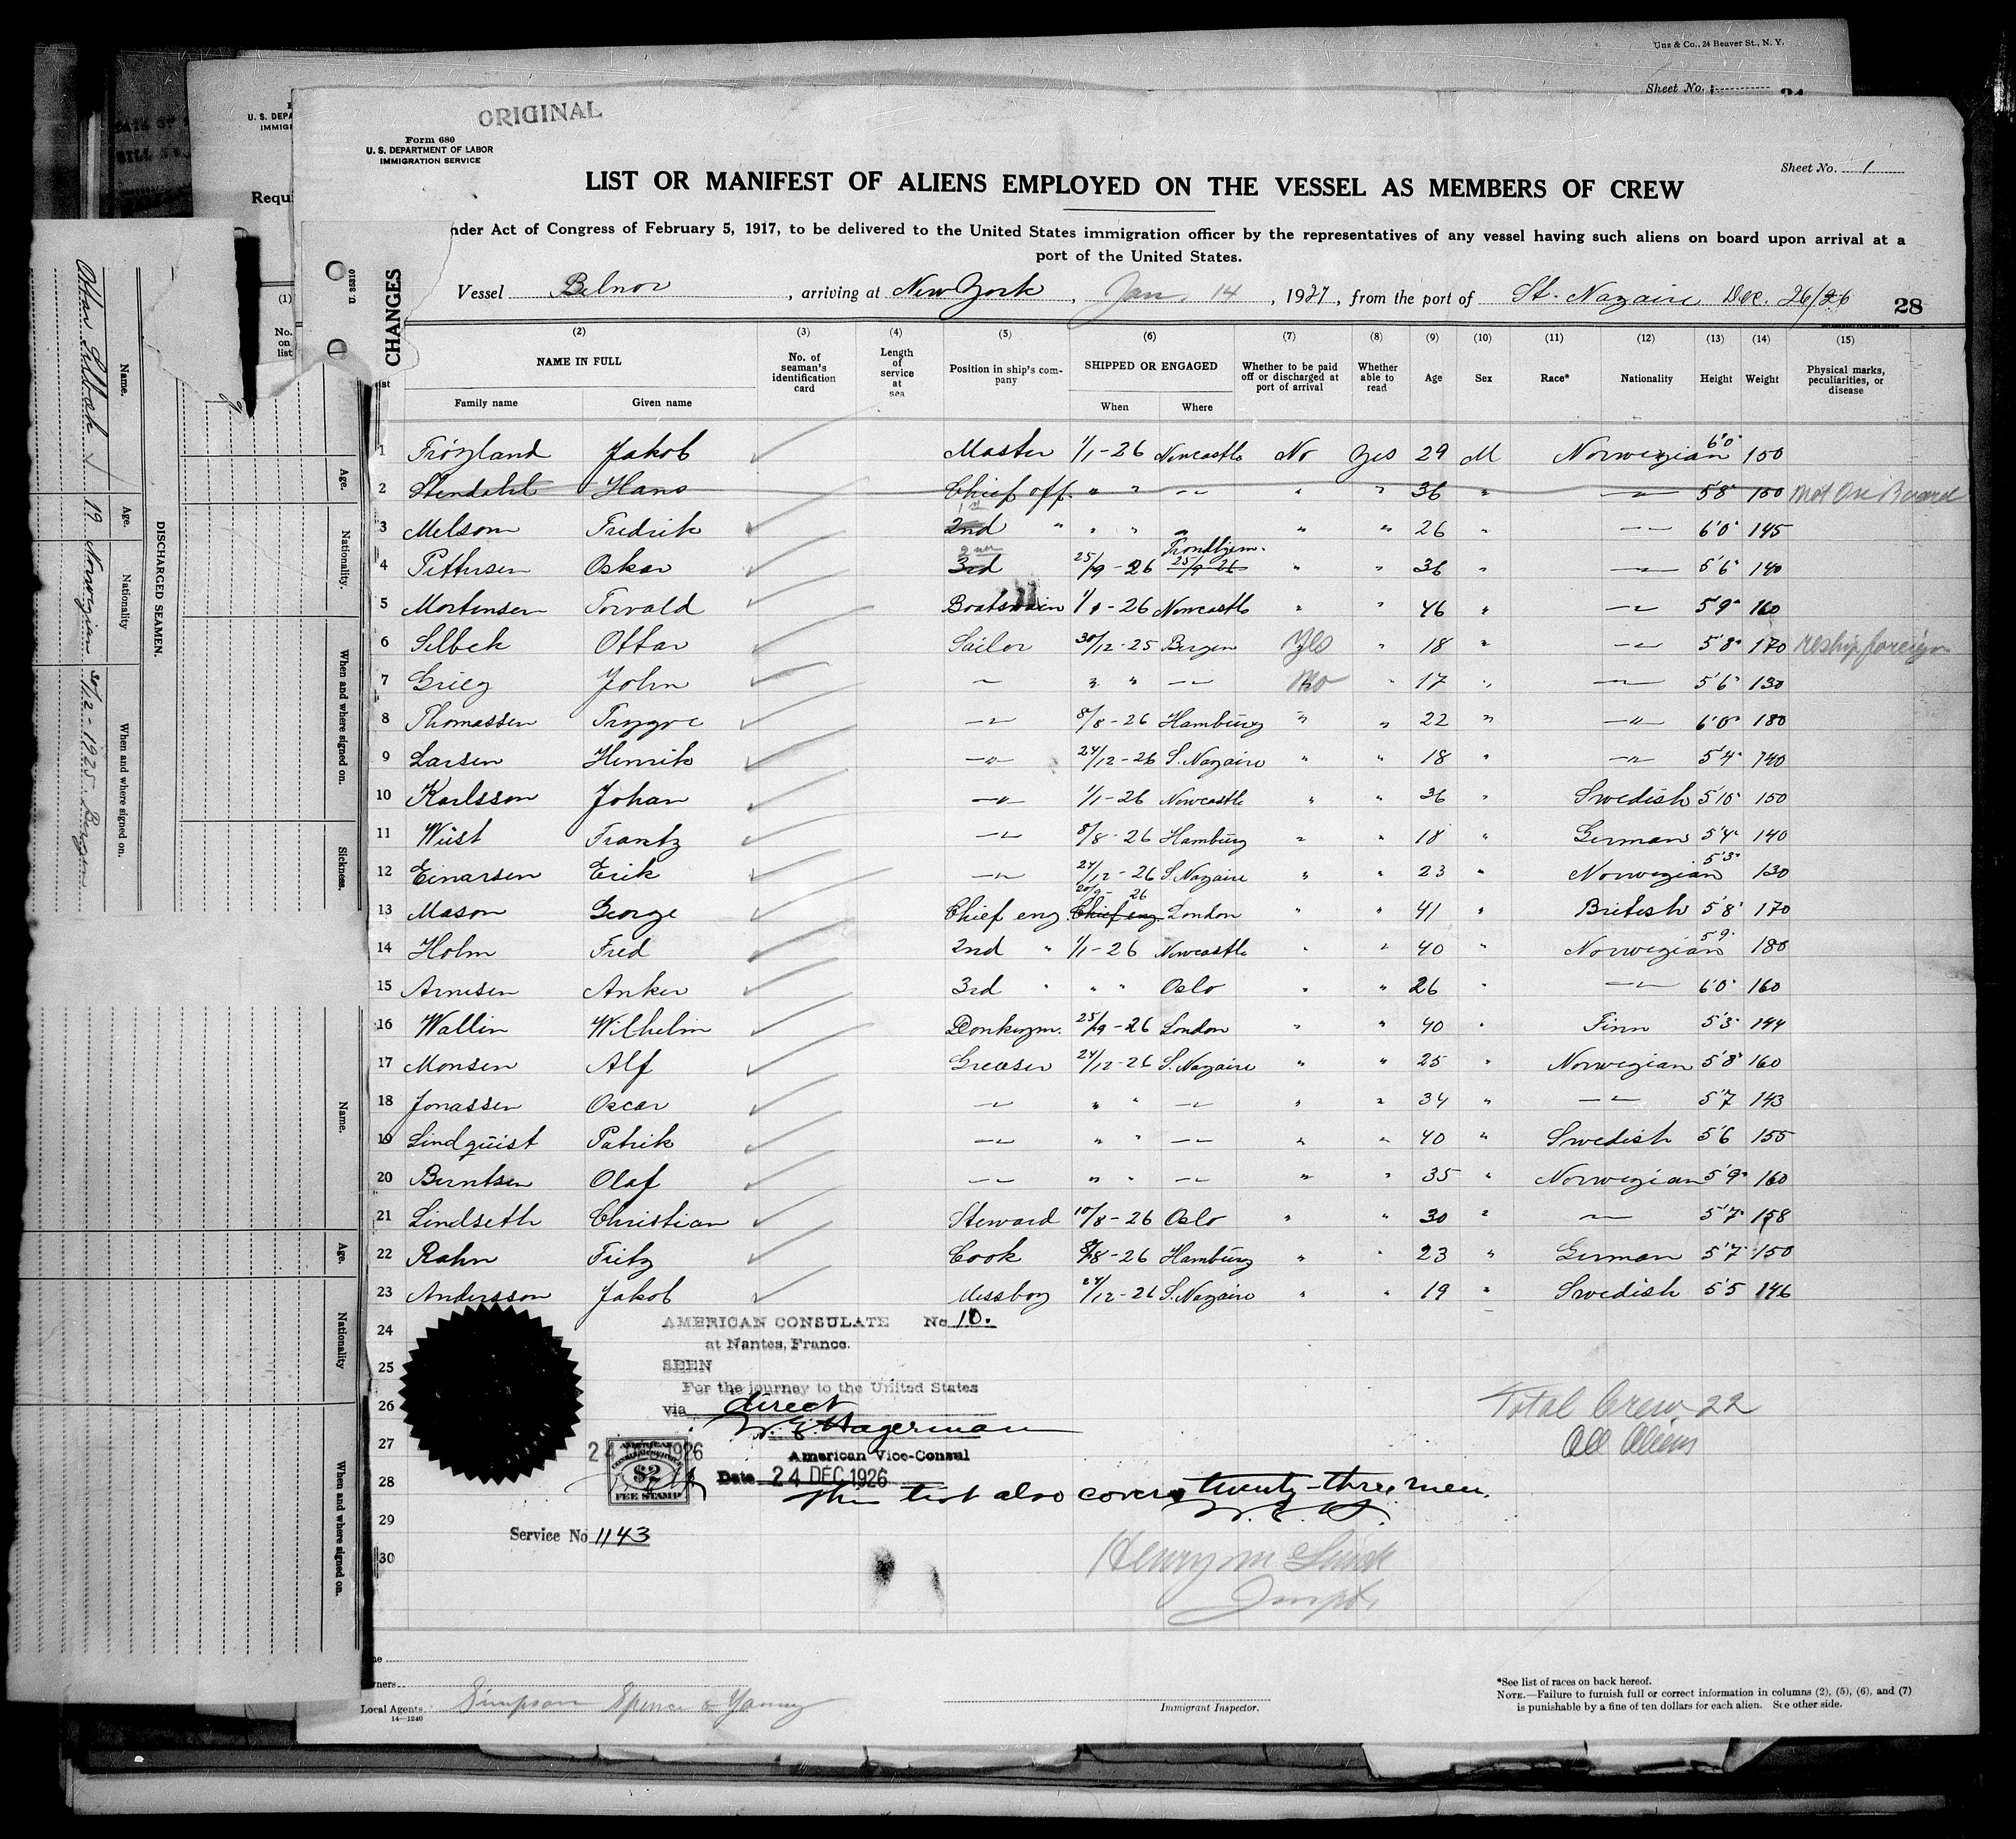 Unz & Co., 24 Beaver St., N. Y.
Sheet No.
ORIGINAL
Form 680
U. S. DEPARTMENT OF LABOR
IMMIGRATION SERVICE
Sheet No. 1
LIST OR MANIFEST OF ALIENS EMPLOYED ON THE VESSEL AS MEMBERS OF CREW
nder Act of Congress of February 5, 1917, to be delivered to the United States immigration officer by the representatives of any vessel having such aliens on board upon arrival at a
port of the United States.
Vessel Belnor, arriving at New York, Jan. 14, 1927, from the port of St. Nazaire Dec. 26/26
28
CHANGES
(2) (3) (4) (5) (6) (7) (8) (9) (10) (11) (12) (13) (14) (15)
NAME IN FULL
Family name Given name
No. of seaman's identification card
Length of service at sea
Position in ship's company
SHIPPED OR ENGAGED
When Where
Whether to be paid off or discharged at port of arrival
Whether able to read
Age
Sex
Race*
Nationality
Height
Weight
Physical marks, peculiarities, or disease
1 Tröyland Jakob Master 1/1-26 Newcastle No Yes 29 M Norwegian 6'0" 150
2 Stendahl Hans Chief off. " " -"- " " 36 " -"- 5'8 150 Not On Board
3 Melsom Fredrik 2nd 1st " " " " " " 26 " -"- 6'0" 145
4 Pettersen Oskar 3rd 2nd 25/9-26 25/9-26 Trondhjem. " " 36 " -"- 5'6" 140
5 Mortensen Torvald Boatswain 1/1-26 Newcastle " " 46 " -"- 5'9" 160
6 Selbek Ottar Sailor 30/12-25 Bergen Yes " 18 " -"- 5'8" 170 reship foreign
7 Grieg John -"- " " -"- No " 17 " -"- 5'6" 130
8 Thomassen Trygve -"- 8/8-26 Hamburg " " 22 " -"- 6'0" 180
9 Larsen Henrik -"- 24/12-26 S. Nazaire " " 18 " -"- 5'4" 140
10 Karlsson Johan -"- 1/1-26 Newcastle " " 36 " Swedish 5'10" 150
11 Wüst Frantz -"- 8/8-26 Hamburg " " 18 " German 5'4" 140
12 Einarsen Erik -"- 24/12-26 S. Nazaire " " 23 " Norwegian 5'3" 130
13 Mason George Chief eng. Chief eng. 20/9-26 London " " 41 " British 5'8" 170
14 Holm Fred 2nd " 1/1-26 Newcastle " " 40 " Norwegian 5'9" 180
15 Arnesen Anker 3rd " " " Oslo " " 26 " -"- 6'0" 160
16 Wallin Wilhelm Donkeym. 25/9-26 London " " 40 " Finn 5'3" 144
17 Monsen Alf Greaser 24/12-26 S. Nazaire " " 25 " Norwegian 5'8" 160
18 Jonassen Oscar -"- " " -"- " " 34 " -"- 5'7 143
19 Lindquist Patrik -"- " " -"- " " 40 " Swedish 5'6 155
20 Berntsen Olaf -"- " " -"- " " 35 " Norwegian 5'9" 160
21 Lindseth Christian Steward 10/8-26 Oslo " " 30 " -"- 5'7" 158
22 Rahn Fritz Cook 8/8-26 Hamburg " " 23 " German 5'7" 150
23 Andersson Jakob Messboy 24/12-26 S. Nazaire " " 19 " Swedish 5'5 146
24
25
26
27
28
29
30
AMERICAN CONSULATE No 10.
at Nantes, France.
SEEN
For the journey to the United States
via direct
W. E. Hagerman
American Vice-Consul
Date 24 DEC 1926
AMERICAN CONSULAR SERVICE
$2
FEE STAMP
This list also covers twenty-three men.
W. E. H.
Service No 1143
Total Crew 22
All Aliens
Inspt.
Local Agents Simpson Spence & Young
14—1240
Immigrant Inspector.
*See list of races on back hereof.
NOTE.—Failure to furnish full or correct information in columns (2), (5), (6), and (7)
is punishable by a fine of ten dollars for each alien. See other side.
DISCHARGED SEAMEN.
Name. Age. Nationality When and where signed on.
Ottar Selbak 19 Norwegian 30/12-1925 Bergen
Age. Nationality. When and where signed on. Sickness.
Name. Age. Nationality When and where signed on.
U. S. DEPA
IMMIG
Requi
(1)
No. on list